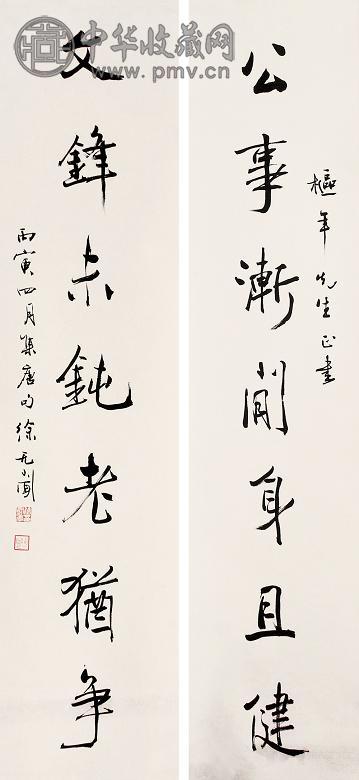 公事漸閒身且健
樞年先生正書
文鋒未鈍老猶爭
丙寅四月集唐句徐无聞
中华收藏网
www.pmv.cn